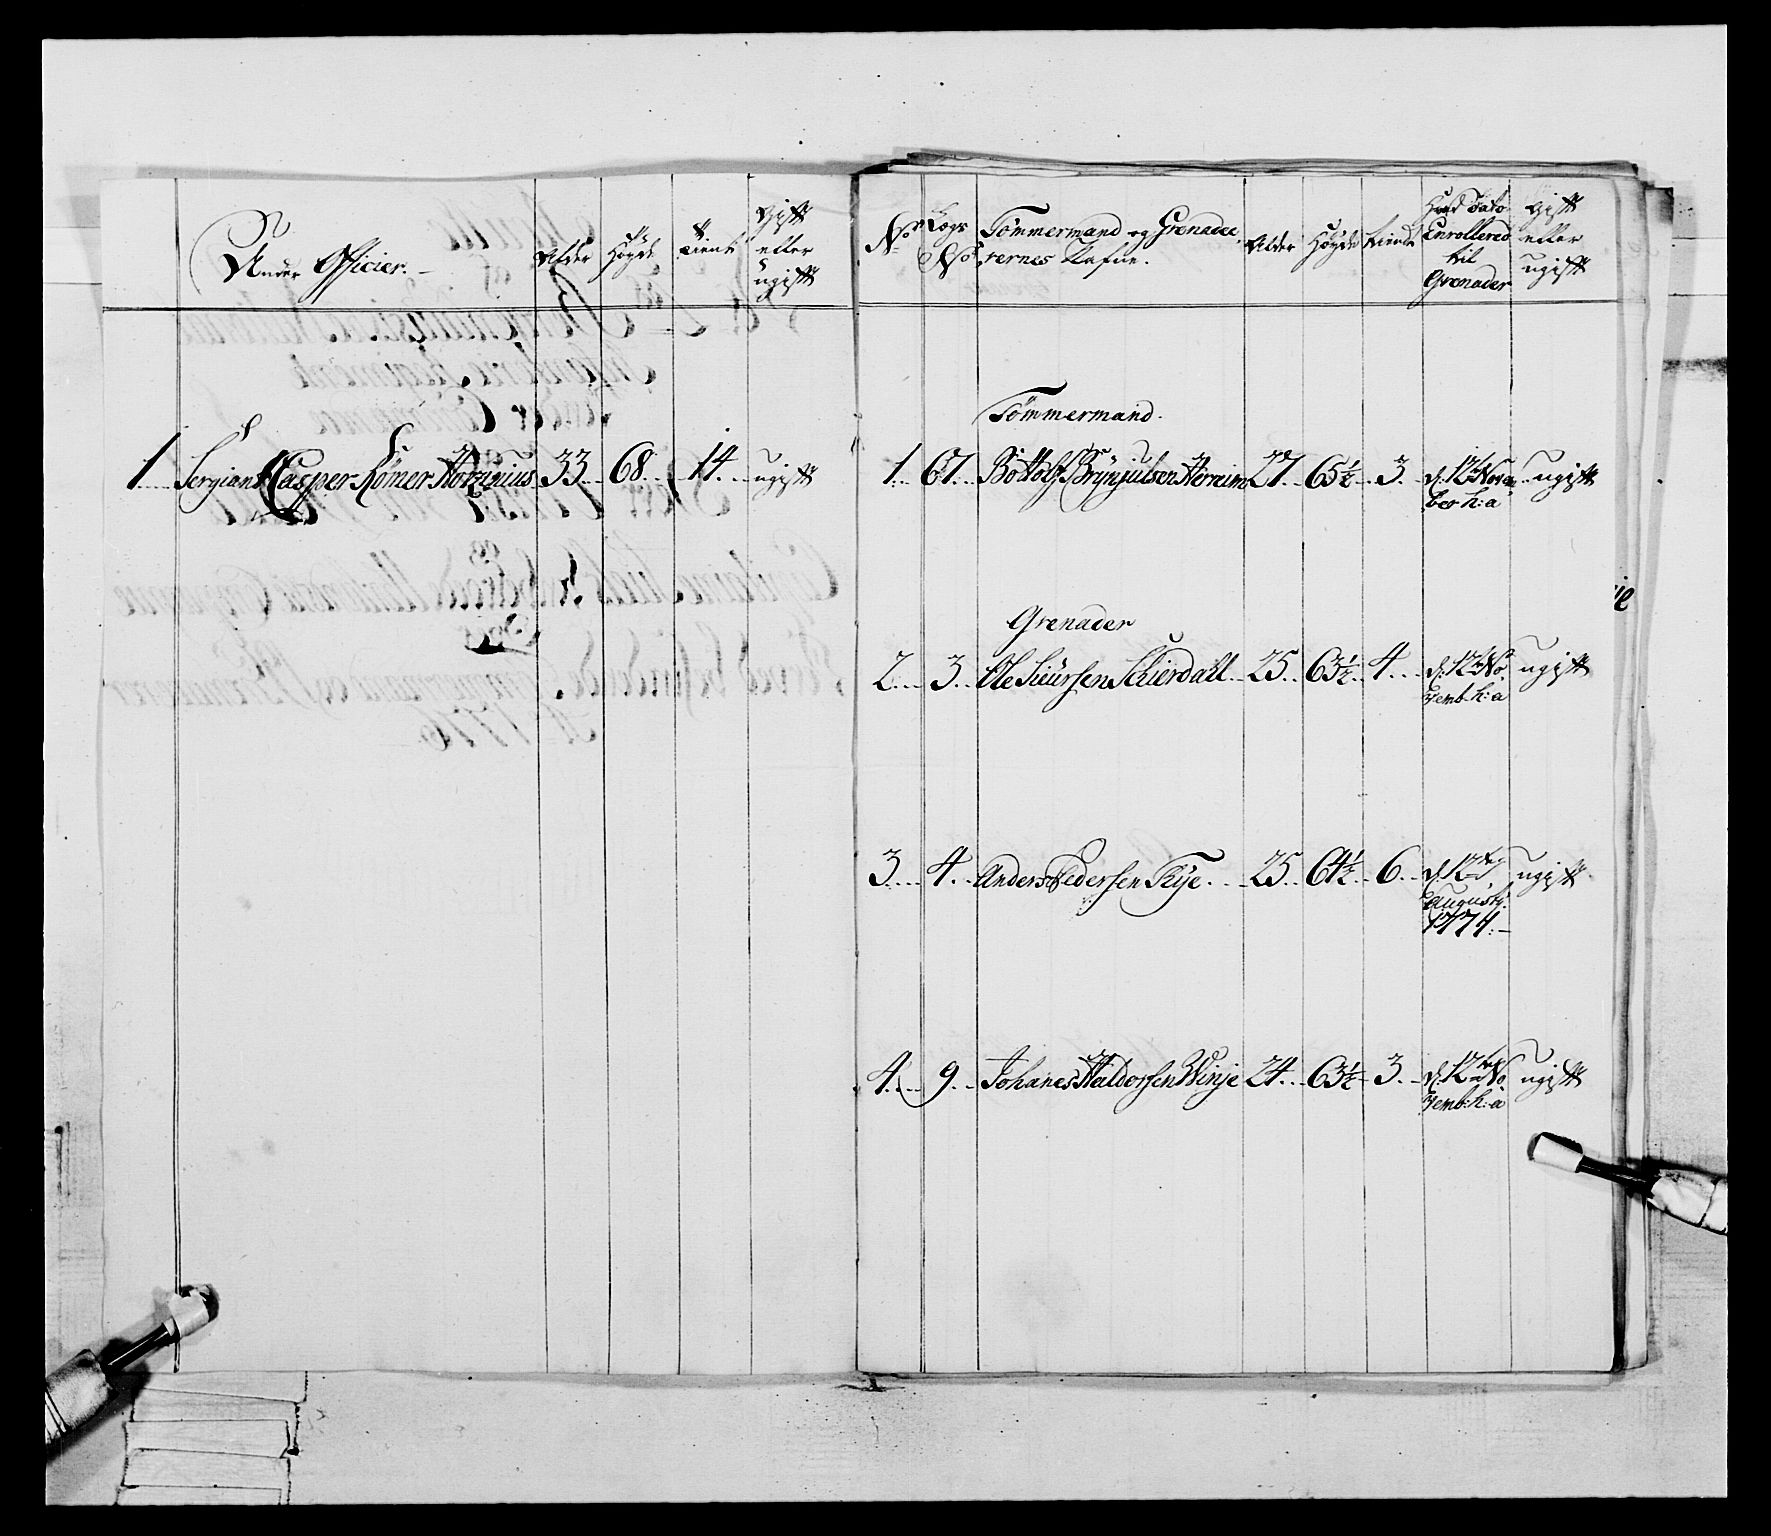 Under Officier.
Alder
Høyde
tient
Gift
eller
ugift
1 Sergiant Casper Römer 33 68 14 ugift
No
Lægs
No
Tömmermand og Grenadee
rernes Nafne.
Alder
Høyde
tiente
Hvad Dato
Enrollered
til
Grenader
Gift
eller
ugift
Tömmermand.
1 67 Bottolf Brynjulsen 27 65½ 3 d. 12te Novem
ber h: a ugift
Grenader
2 3 Ole Siursen Schierdall 25 63½ 4 d. 12te No
vemb. h: a ugift
3 4 Anders Pedersen Tije 25 64½ 6 d. 12te
Augusty
1774. ugift
4 9 Johanes Haldorsen Winje 24 63½ 3 d. 12te No
vemb: h: a ugift